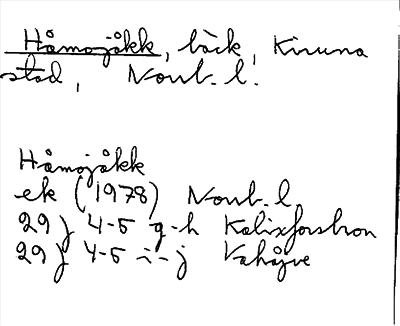 Håmojåkk, bäck, Kiruna
stad, Norrb. l.
Håmojåkk
ek (1978) Norrb. l.
29 J 4-5 g-h Kalixforsbron
29 J 4-5 i-j Vahåjve